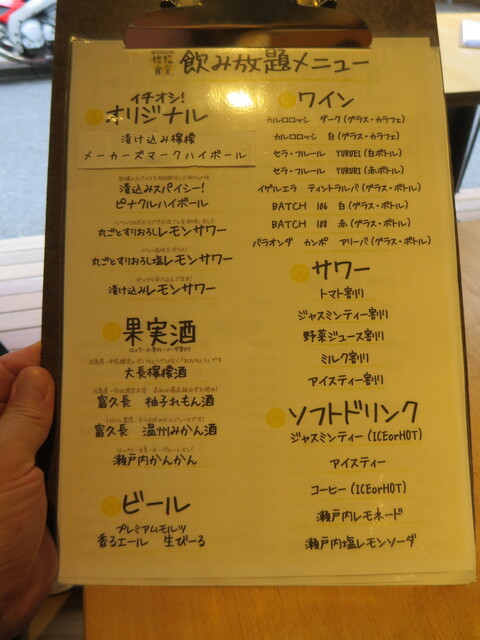 飲み放題メニュー
イチオシ!
オリジナル
漬け込み檸檬
メーカーズマークハイボール
漬込みスパイシー!
ピナクルハイボール
丸ごとすりおろしレモンサワー
丸ごとすりおろし塩レモンサワー
漬け込みレモンサワー
果実酒
大長檸檬酒
富久長 柚子れもん酒
富久長 温州みかん酒
瀬戸内かんかん
ビール
プレミアムモルツ
香るエール 生びーる
ワイン
カルロロッシ ダーク(グラス・カラフェ)
カルロロッシ 白(グラス・カラフェ)
セラ・フルール YURUEI (白ボトル)
セラ・フルール YURURI (赤ボトル)
イゲルエラ ティントラルバ(グラス・ボトル)
BATCH 106 白(グラス・ボトル)
BATCH 108 赤(グラス・ボトル)
パラオンダ カンポ アリーバ(グラス・ボトル)
サワー
トマト割り
ジャスミンティー割り
野菜ジュース割り
ミルク割り
アイスティー割り
ソフトドリンク
ジャスミンティー(ICEorHOT)
アイスティー
コーヒー(ICEorHOT)
瀬戸内レモネード
瀬戸内塩レモンソーダ